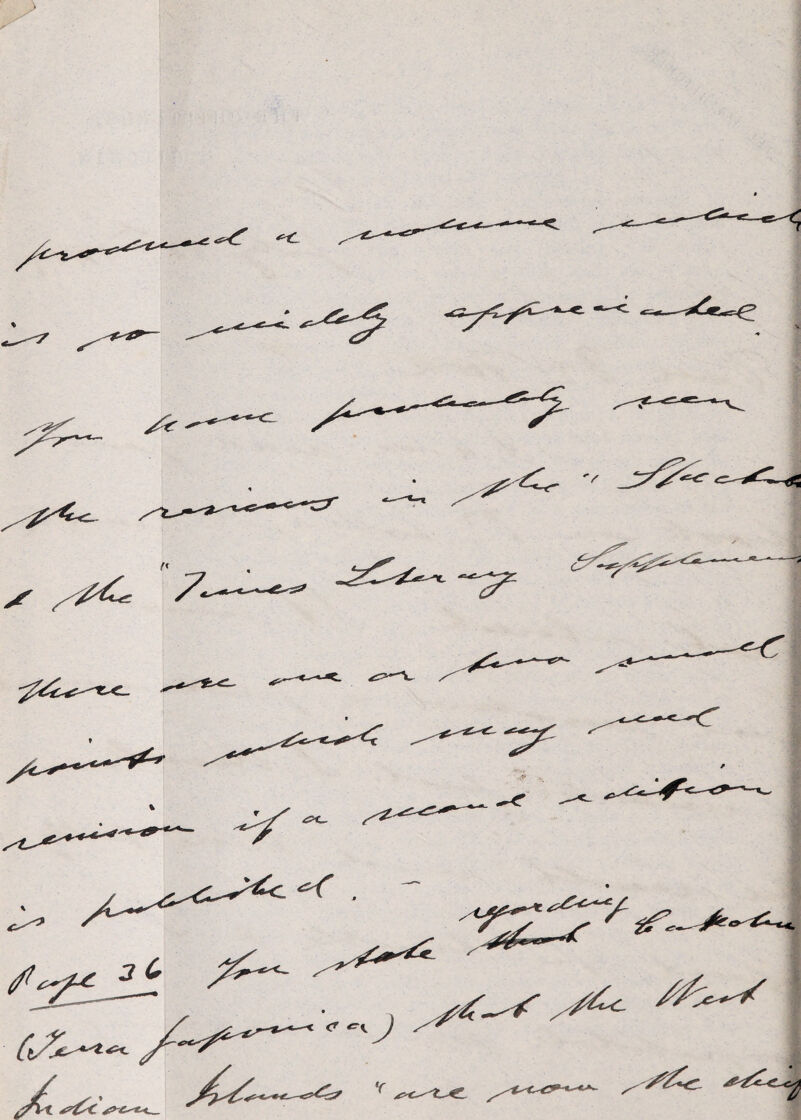 produced a volume which
is so widely appreciated.
You have probably seen
the reviews in the "Spectator
& the "Times Literary Supplement
There are one or two small
points which may need
revision if a second edition
is published. -
Page 36 You state that regarding
(Terra Japonica) that the West
Indian Islands "are now the cheif